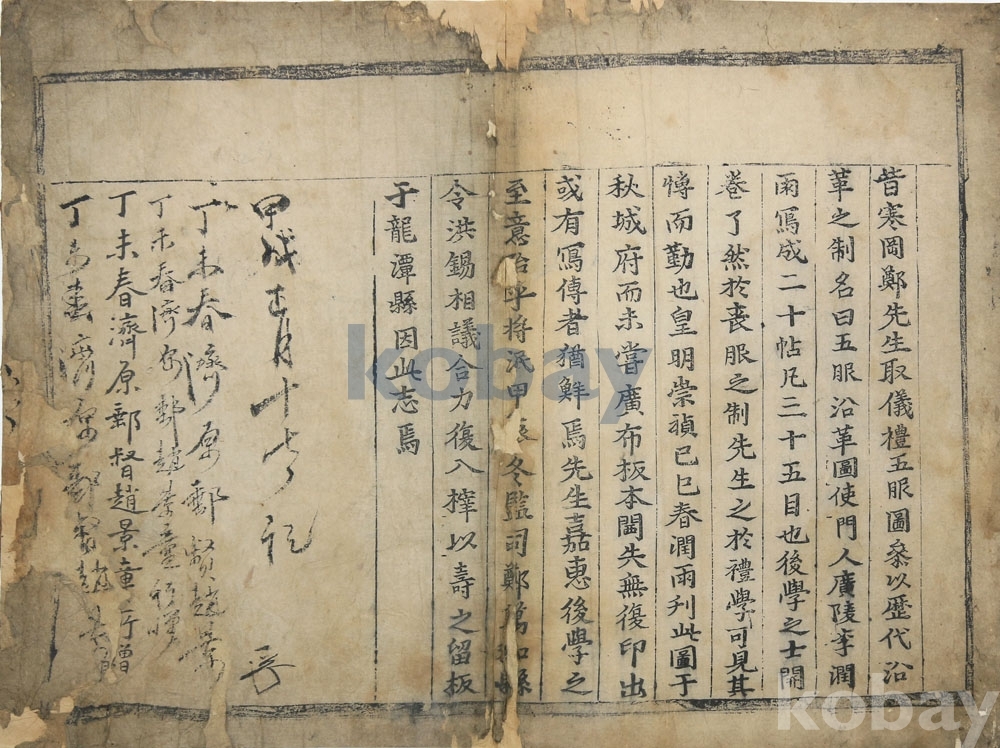 昔寒岡鄭先生取儀禮五服圖叅以歷代沿
革之制名曰五服沿革圖使門人廣陵李潤
雨寫成二十帖凡三十五目也後學之士開
卷了然於喪服之制先生之於禮學可見其
慱而勤也皇明崇禎己巳春潤雨刊此圖于
秋城府而未嘗廣布板本閪失無復印出
或有寫傳者猶鮮焉先生嘉惠後學之
至意殆乎將泯甲 冬監司鄭 知縣
令洪錫相議合力復入榟以壽之留板
于龍潭縣因此志焉
甲戌 月十七 記
丁未春濟原郵督趙景
丁未春濟原郵趙景童行贈
丁未春濟原郵督趙景童行贈
丁未 濟原郵督趙景
kobay
kobay